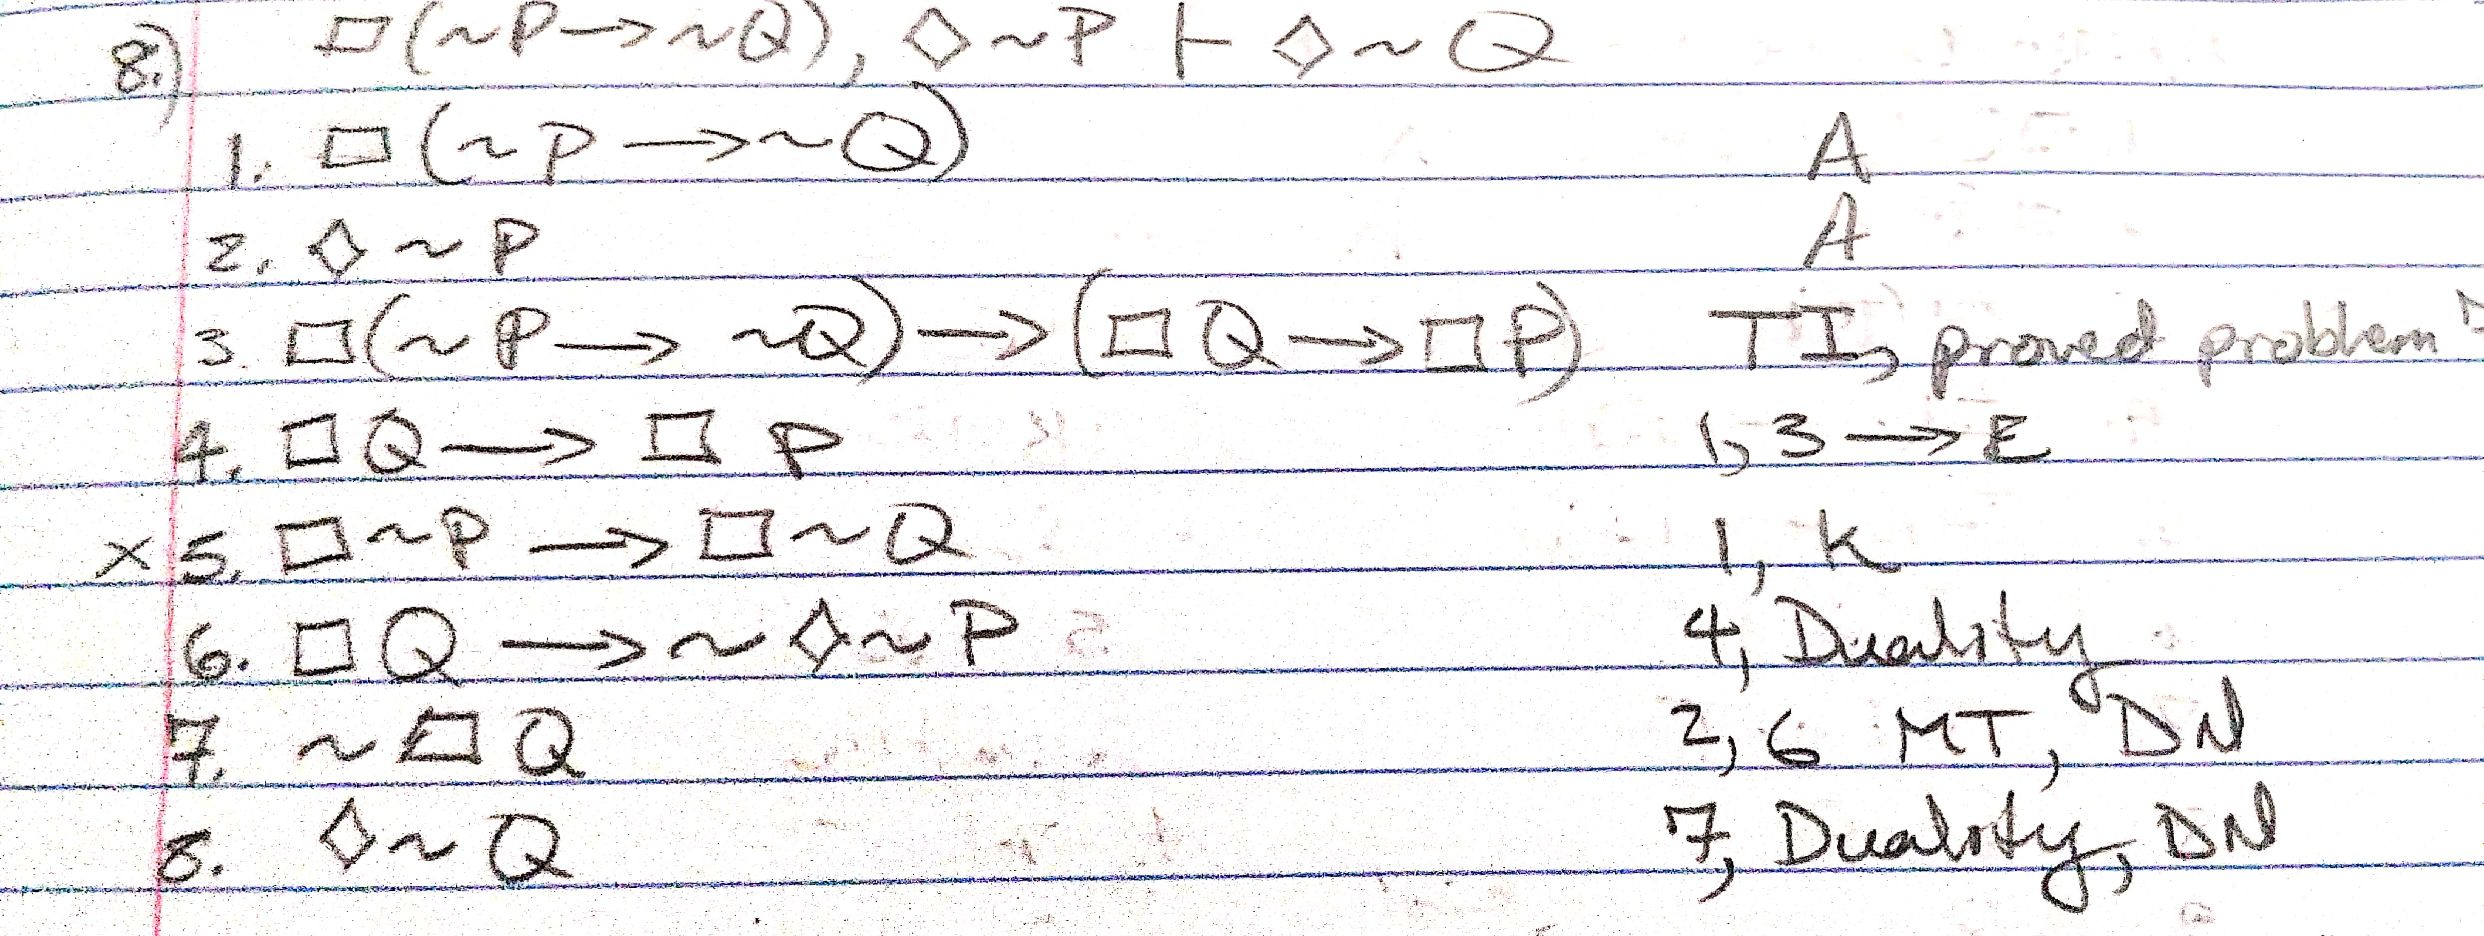 8.) □(~P→~Q), ◇~P ⊢ ◇~Q
1. □(~P→~Q) A
2. ◇~P A
3. □(~P→~Q)→(□Q→□P) TI, proved problem
4. □Q→□P 1,3→E
×5. □~P→□~Q 1, K
6. □Q→~◇~P 4, Duality
7. ~□Q 2,6 MT, DN
8. ◇~Q 7, Duality, DN